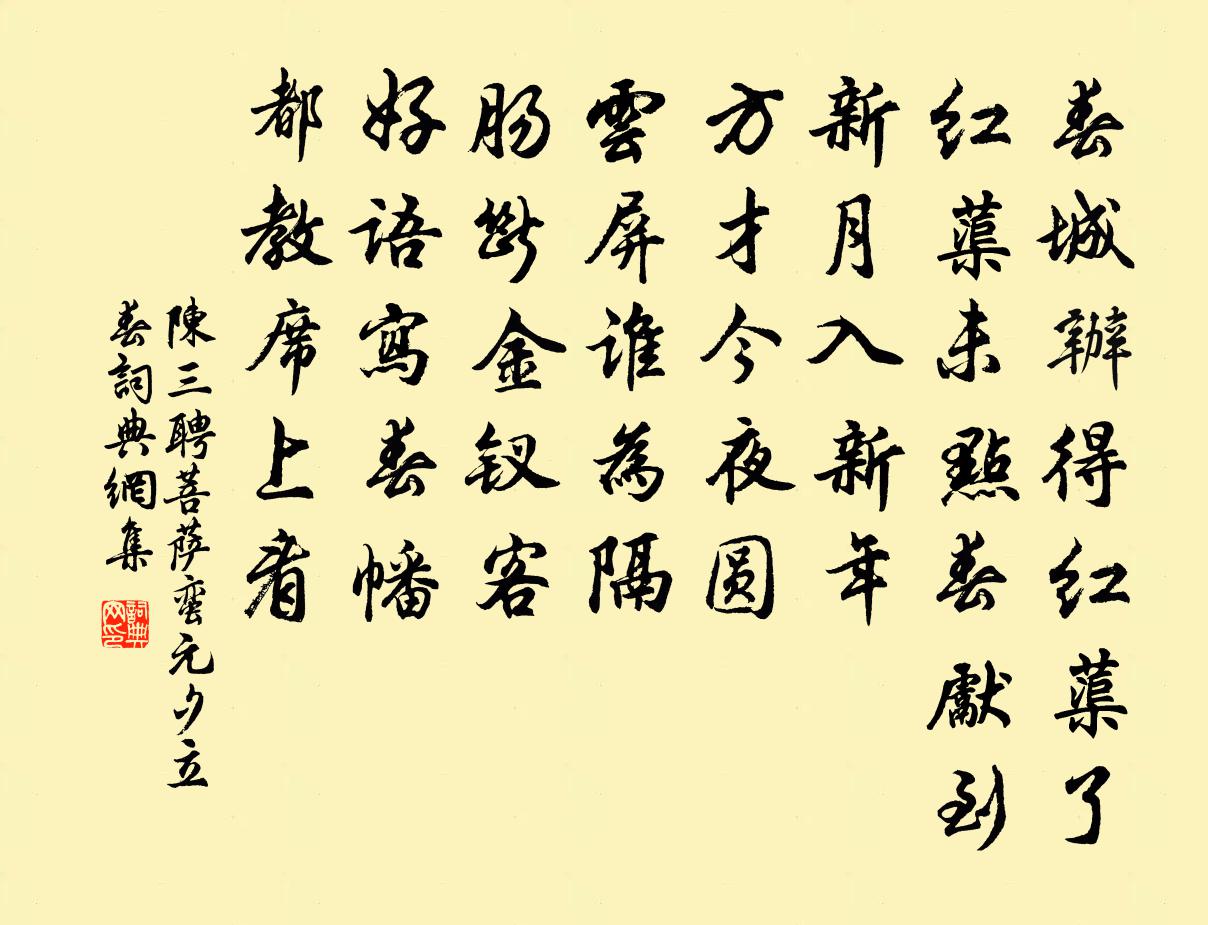 春城辦得紅蕖了
紅蕖未點春獻到
新月入新年
方才今夜圓
雲屏誰為隔
腸斷金釵客
好語寫春幡
都教席上看
陳三聘菩薩蠻元夕立
春詞典網集
詞典网印